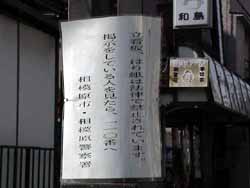 立看板、はり紙は法律で禁止されています。
掲示をしている人を見たら、一一〇番へ
相模原市・相模原警察署
和鳥